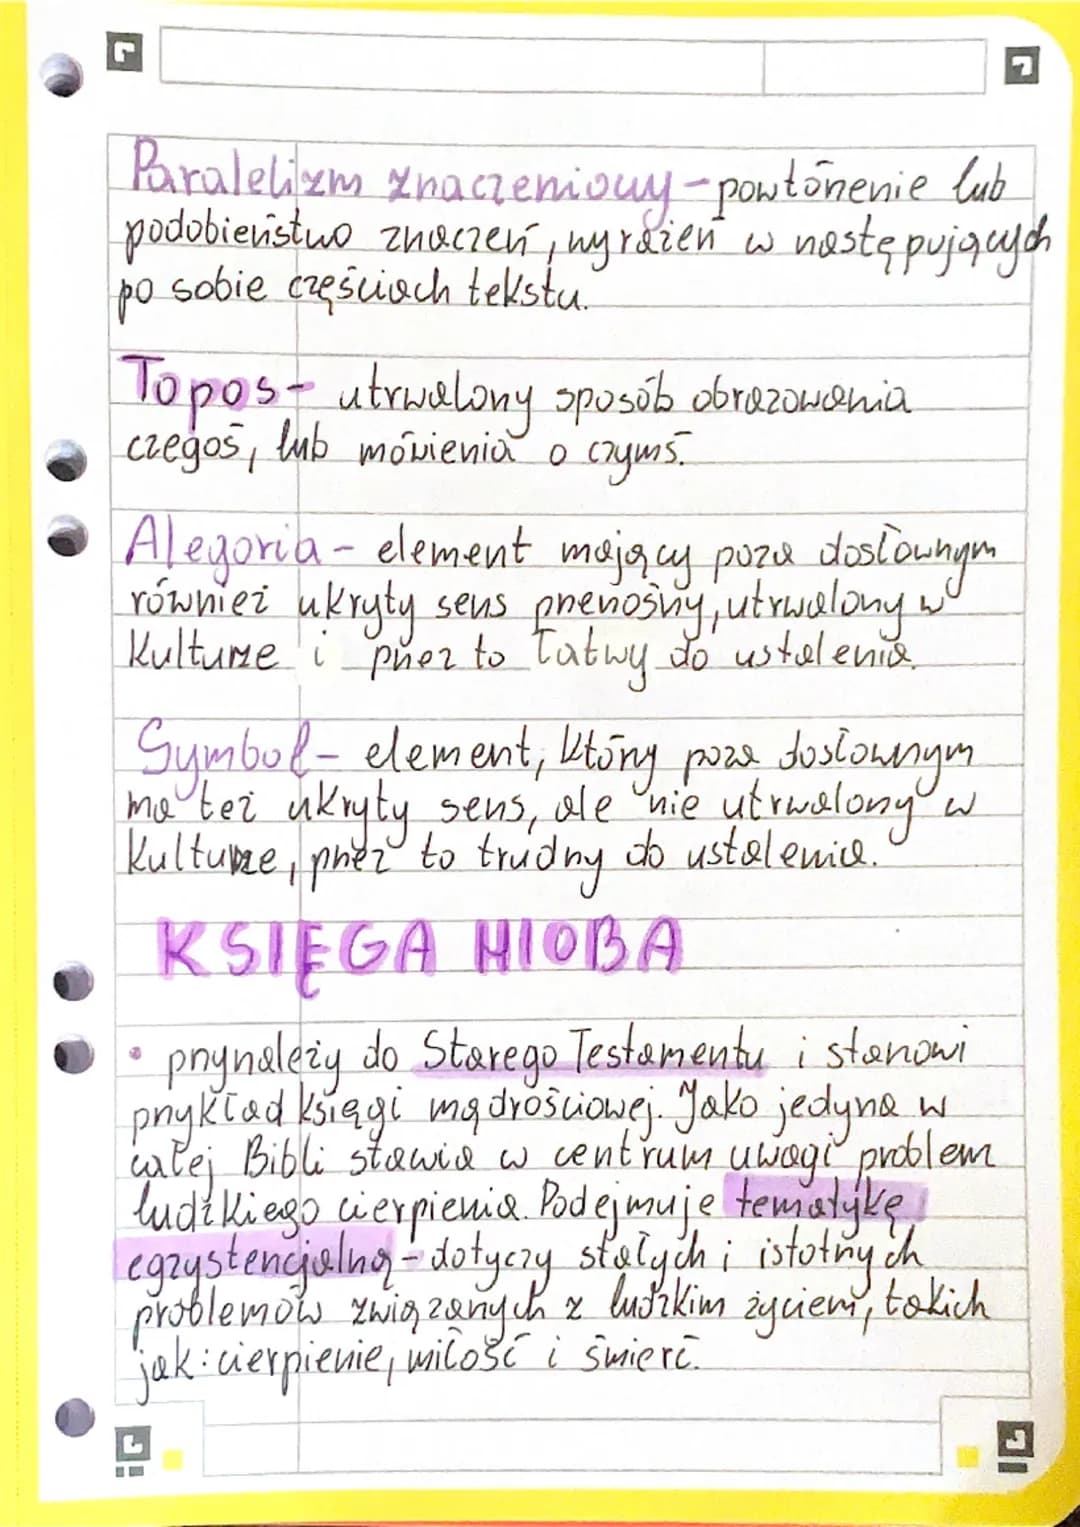 Paralelizm znaczeniowy - powtórzenie lub
podobieństwo znaczeń, wyrażeń w następujących
po sobie częściach tekstu.
Topos - utrwalony sposób obrazowania
czegoś, lub mówienia o czymś.
Alegoria - element mający poza dosłownym
również ukryty sens przenośny, utrwalony w
kulturze i przez to łatwy do ustalenia.
Symbol - element, który poza dosłownym
ma też ukryty sens, ale nie utrwalony w
kulturze, przez to trudny do ustalenia.
KSIĘGA HIOBA
• przynależy do Starego Testamentu i stanowi
przykład księgi mądrościowej. Jako jedyna w
całej Bibli stawia w centrum uwagi problem
ludzkiego cierpienia. Podejmuje tematykę
egzystencjalną - dotyczy stałych i istotnych
problemów związanych z ludzkim życiem, takich
jak: cierpienie, miłość i śmierć.